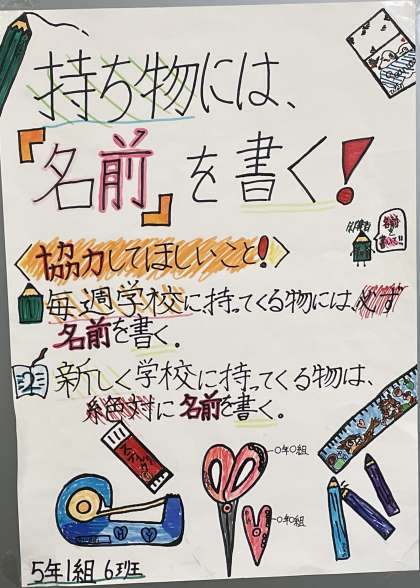 持ち物には、
『名前』を書く!
協力してほしいこと!
毎週学校に持ってくる物には、必ず
名前を書く。
新しく学校に持ってくる物は、
絶対に名前を書く。
0年0組
0年0組
5年1組 6班